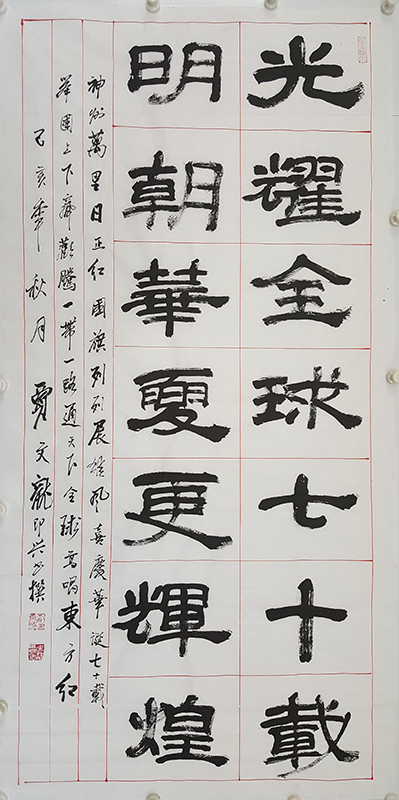 光耀全球七十載
明朝華夏更輝煌
神州萬里日正红國旗列列展雄风喜慶華诞七十載
举國上下齐歡騰一带一路通天下全球高唱東方红
己亥年秋月 賈文龍印兴书撰